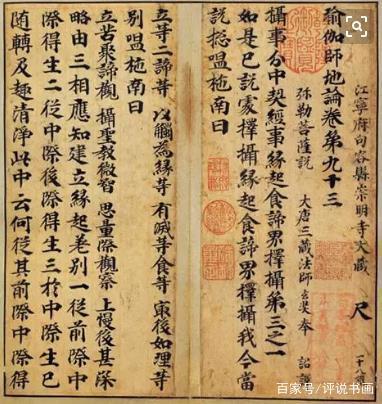 江寧府句容縣崇明寺大藏 尺
瑜伽師地論卷第九十三
彌勒菩薩說 大唐三藏法師玄奘奉 詔譯
攝事分中契經事緣起食諦界擇攝第三之一
如是已說處擇攝緣起食諦界擇攝我今當
說摠嗢柂南曰
立等二諦等 以觸為緣等 有滅等食等 冣後如理等
別嗢柂南曰
立苦聚諦觀 攝聖教微智 思量際觀察 上慢後甚深
略由三相應知建立緣起差別一從前際中
際得生二從中際後際得生三於中際生已
隨轉及趣清淨此中云何從其前際中際得
百家号/评说书画